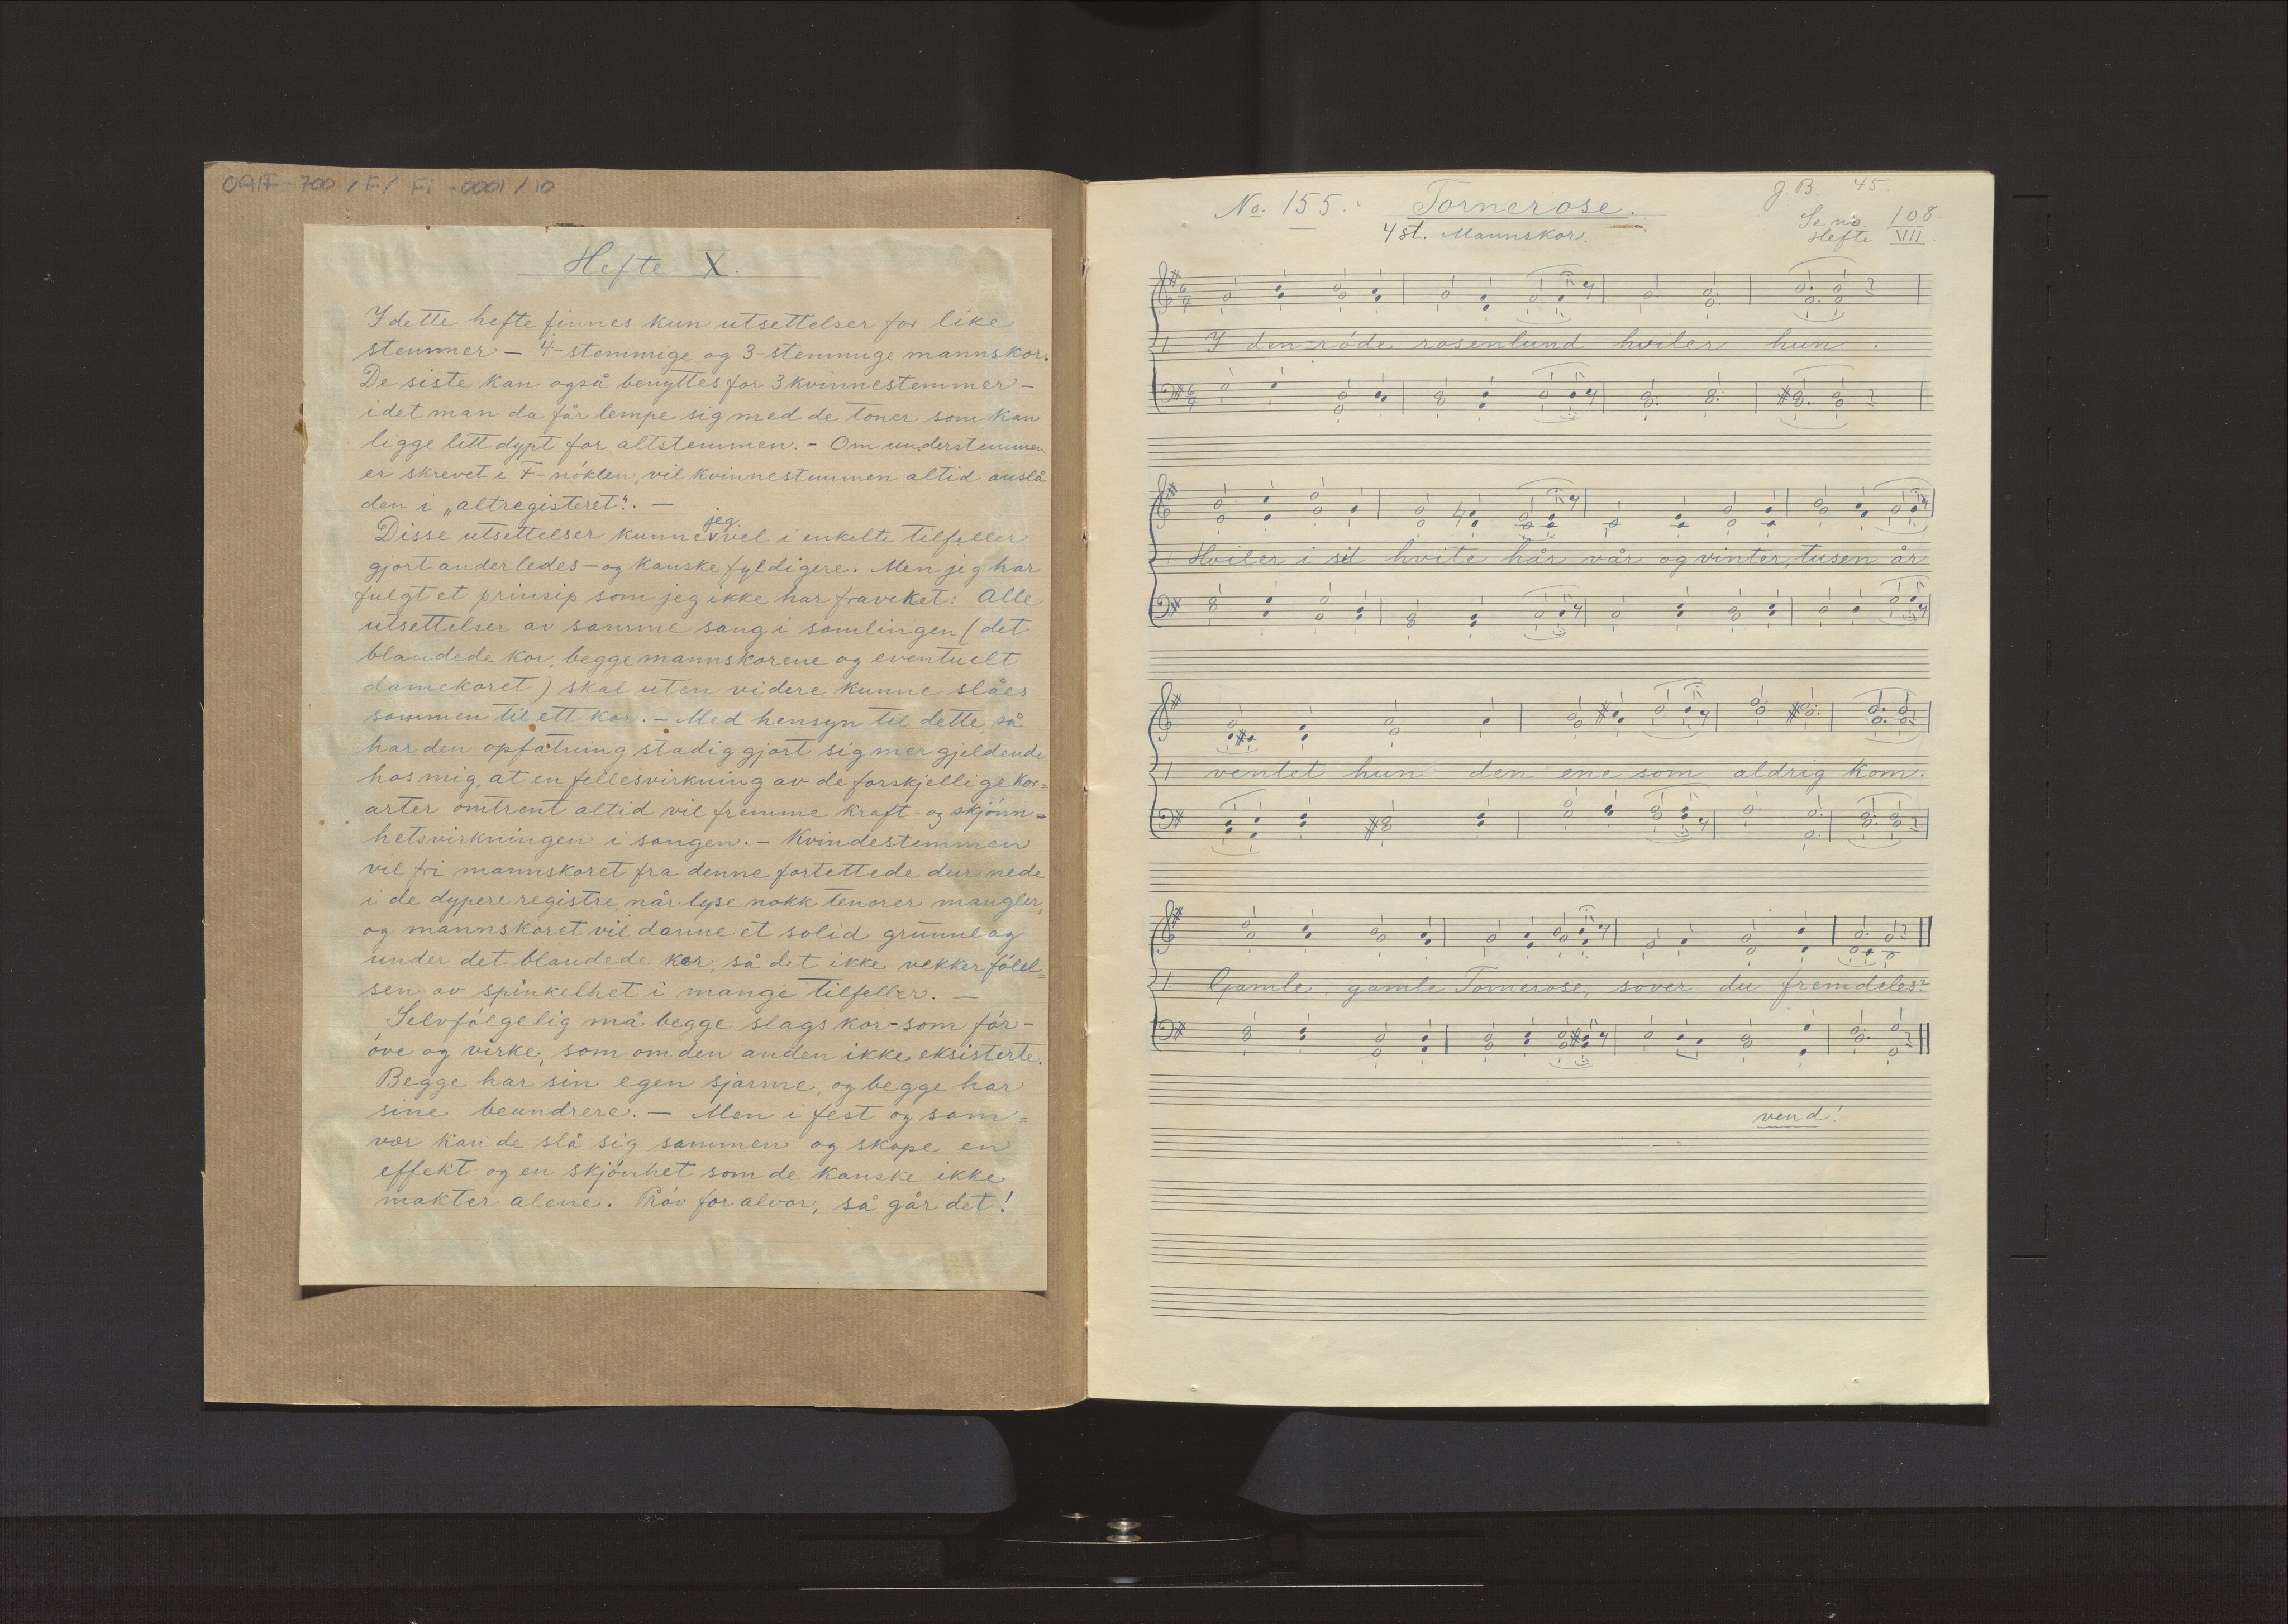 OAIF - 700 / F / Fi - 0001 / 10
Hefte X.
I dette hefte finnes kun utsettelser for like
stemmer - 4-stemmige og 3-stemmige mannskor.
De siste kan også benyttes for 3 kvinnestemmer -
idet man da får lempe sig med de toner som kan
ligge litt dypt for altstemmen. - Om understemmen
er skrevet i F-nóklen, vil kvinnestemmen altid anslå
den i „altregisteret“. -
Disse utsettelser kunne jeg vel i enkelte tilfeller
gjort anderledes - og kanske fyldigere. Men jeg har
fulgt et prinsip som jeg ikke har fraveket: Alle
utsettelser av samme sang i samlingen (det
blandede kor, begge mannskorene og eventuelt
damekoret) skal uten videre kunne slåes
sammen til ett kor. - Med hensyn til dette, så
har den opfatning stadig gjort sig mer gjeldende
hos mig, at en fellesvirkning av de forskjellige kor=
arter omtrent altid vil fremme kraft- og skjónn=
hetsvirkningen i sangen. - Kvindestemmen
vil fri mannskoret fra denne fortettede dur nede
i de dypere registre når lyse nokk tenorer mangler,
og mannskoret vil danne et solid grunnlag
under det blandede kor, så det ikke vekker fólel=
sen av spinkelhet i mange tilfeller. -
Selvfólgelig må begge slags kor - som fór -
óve og virke, som om den anden ikke eksisterte.
Begge har sin egen sjarme, og begge har
sine beundrere. - Men i fest og sam=
vær kan de slå sig sammen og skape en
effekt og en skjónhet som de kanske ikke
makter alene. Próv for alvor, så går det!
No. 155. Tornerose. J. B. 45.
4 st. Mannskor. Se no. 108.
Hefte VII.
1 I den róde rosenlund hviler hun.
1 Hviler i sit hvite hår vår og vinter, tusen år
1 ventet hun den ene som aldrig kom.
1 Gamle, gamle Tornerose, sover du fremdeles?
vend!